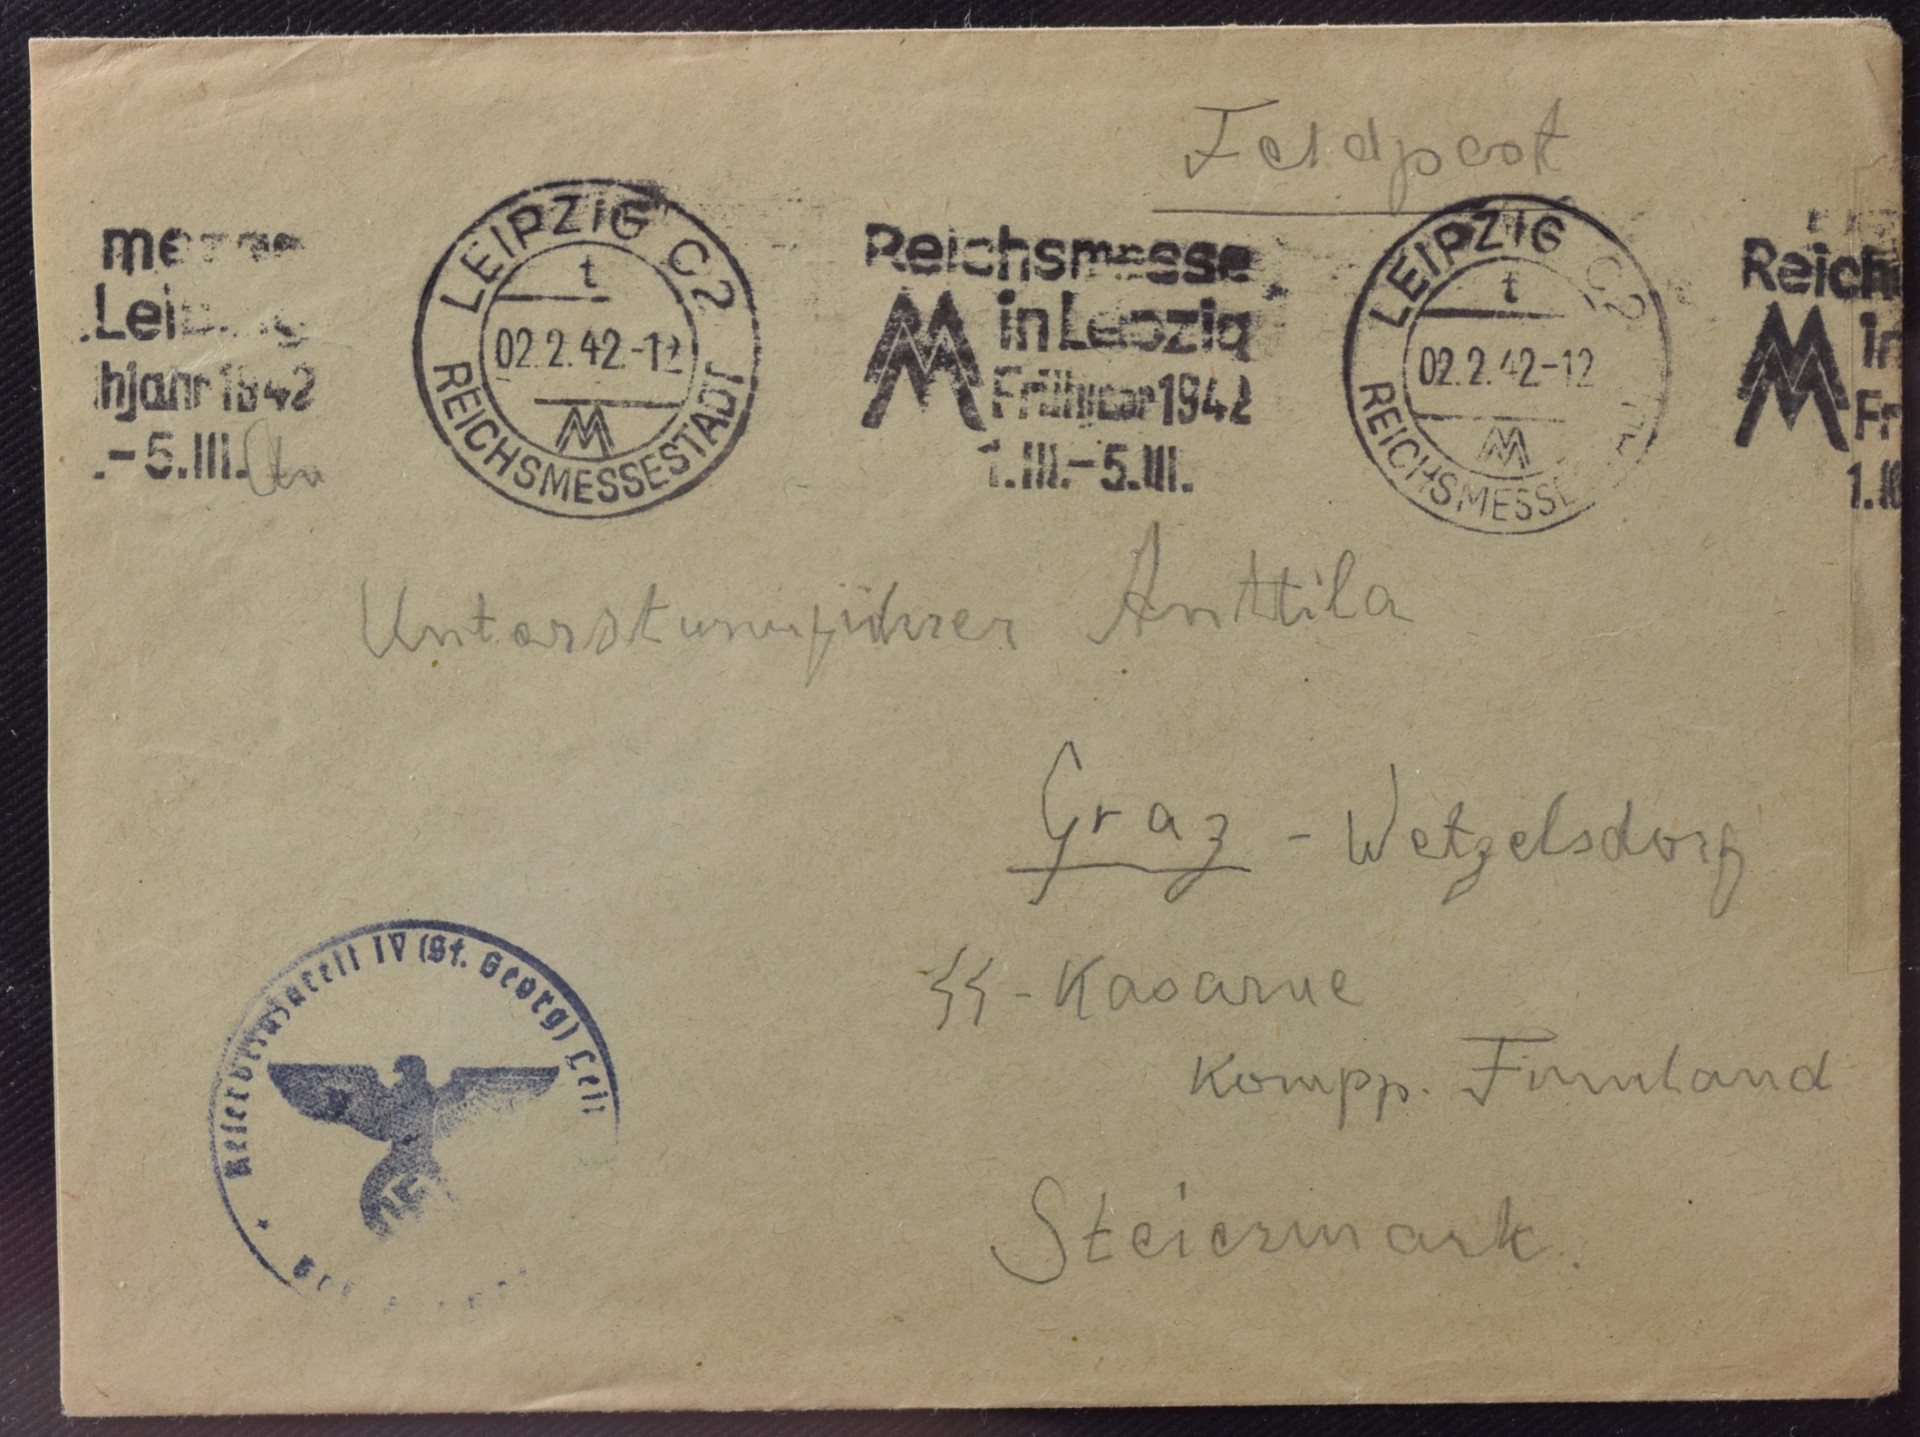 Feldpost
messe
Leipzig
hjahr 1942
.-5.III.
An
LEIPZIG C2
t
02.2.42.-12
REICHSMESSESTADT
Reichsmesse
in Leipzig
Frühjahr 1942
1.III.-5.III.
LEIPZIG C2
t
02.2.42-12
REICHSMESSE
Reichs
in
Fr
1.III
Untersturmführer Anttila
Graz - Wetzelsdorf
SS-Kasarne
Kompp. Finnland
Steiermark.
Reservelazarett IV (St. Georg) Leip